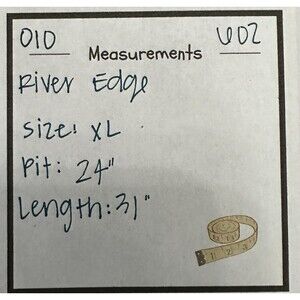 010
UO2
Measurements
River Edge
Size: XL
Pit: 24"
Length: 31"